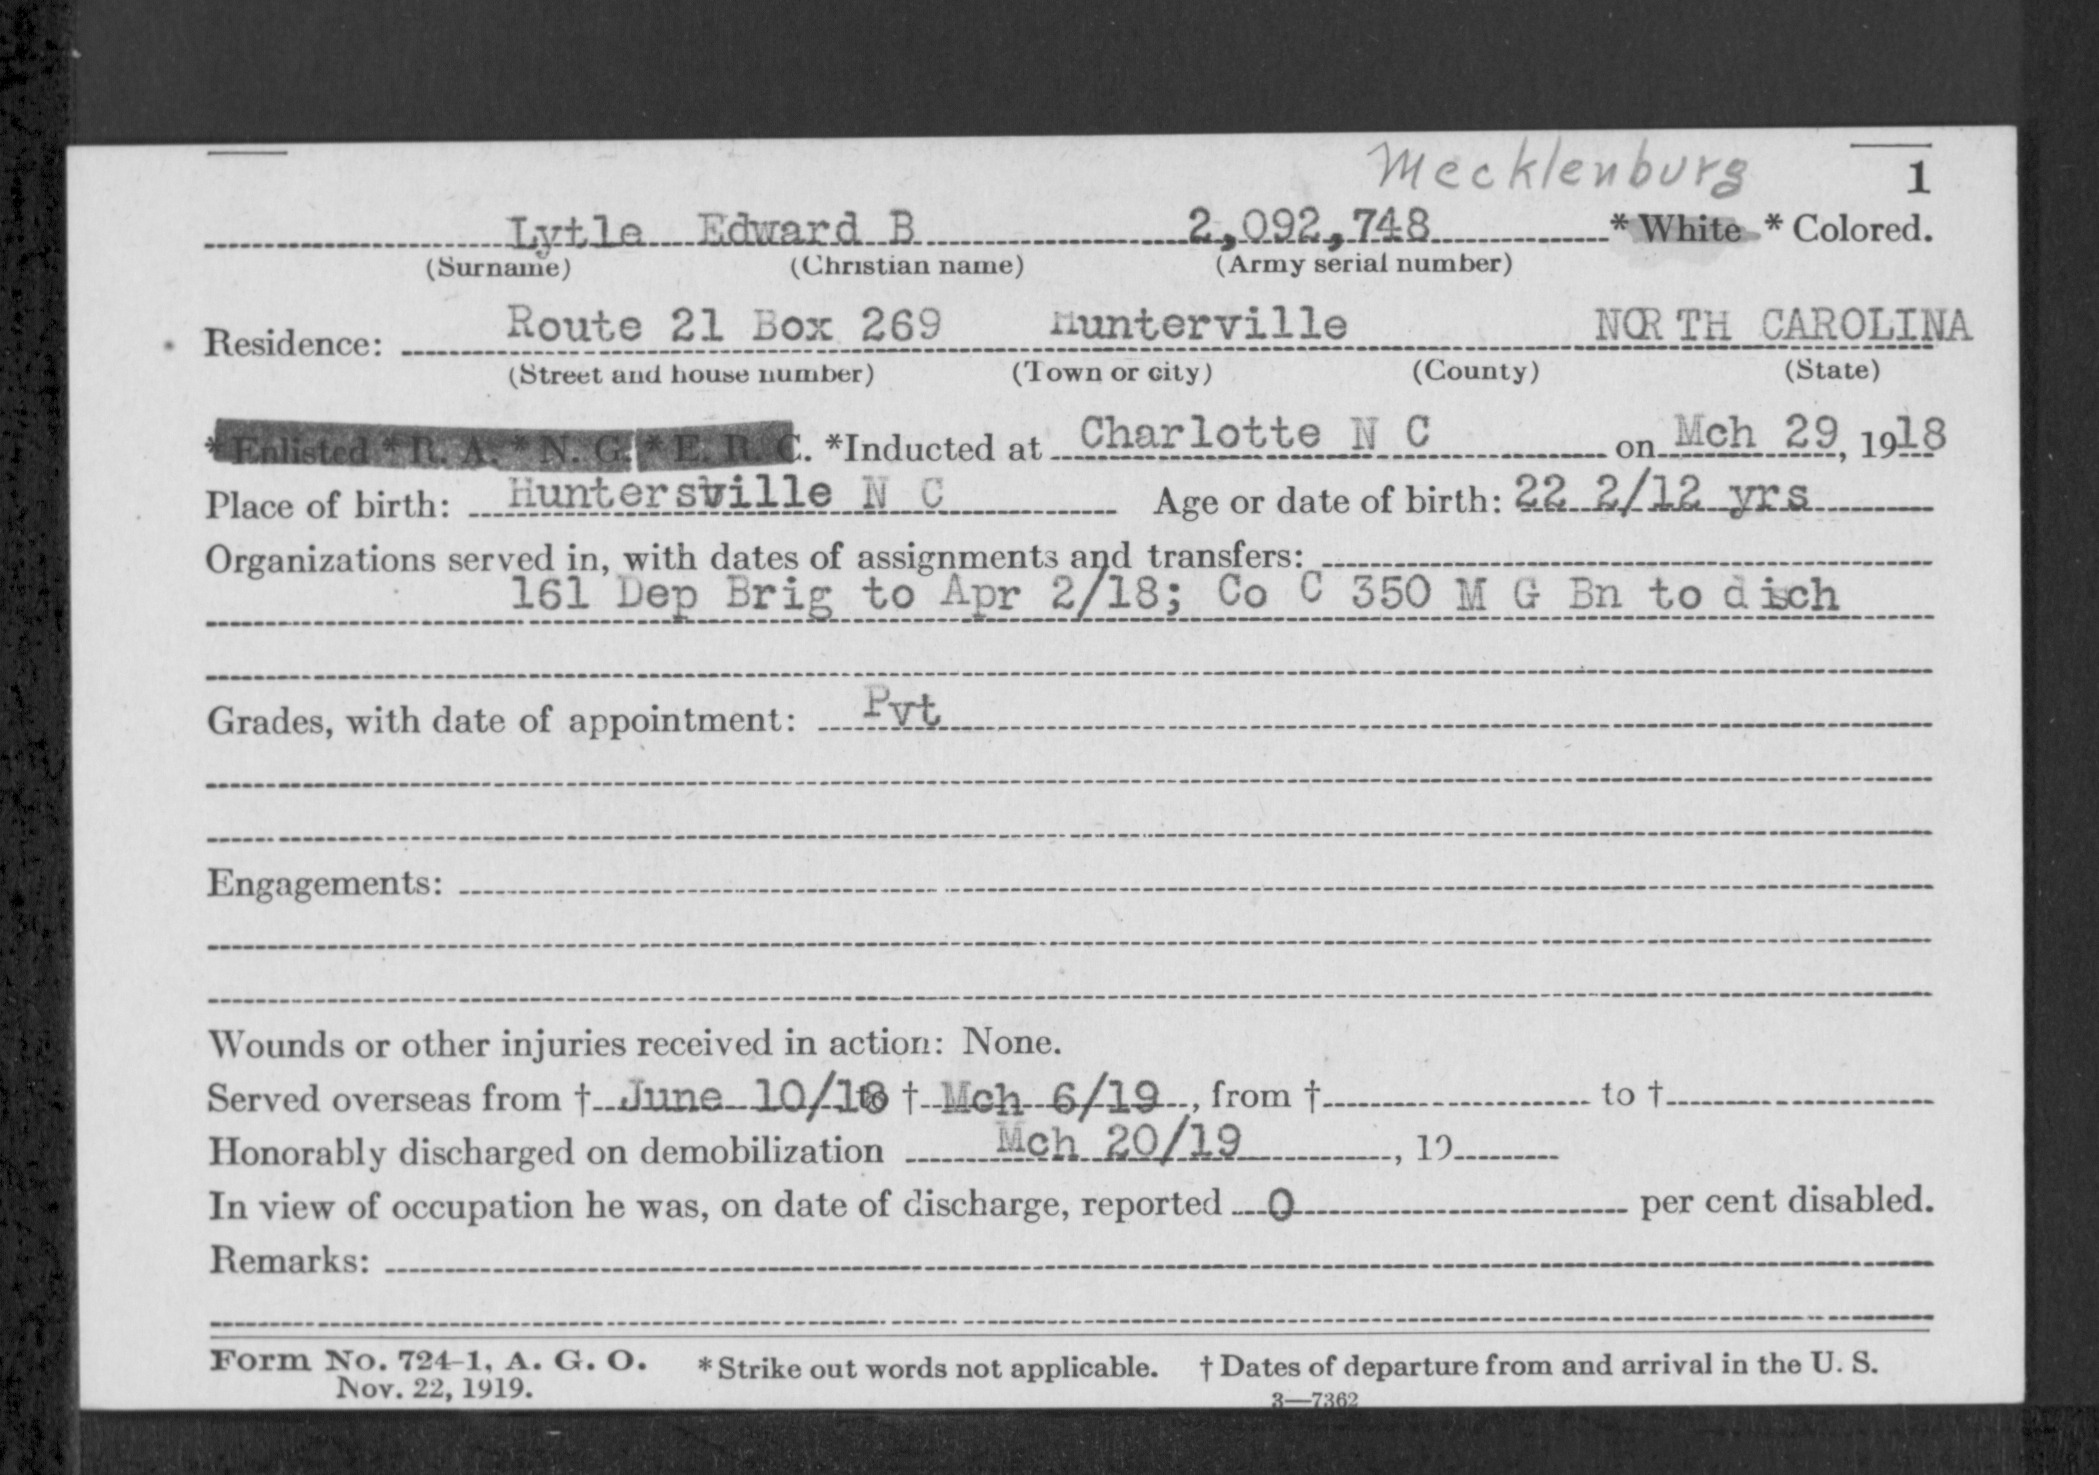 Mecklenburg
1
Lytle Edward B 2,092,748 * White * Colored.
(Surname) (Christian name) (Army serial number)
Residence: Route 21 Box 269 Hunterville NORTH CAROLINA
(Street and house number) (Town or city) (County) (State)
* Enlisted * R. A. * N. G. * E. R. C. *Inducted at Charlotte N C on Mch 29, 1918
Place of birth: Huntersville N C Age or date of birth: 22 2/12 yrs
Organizations served in, with dates of assignments and transfers:
161 Dep Brig to Apr 2/18; Co C 350 M G Bn to disch
Grades, with date of appointment: Pvt
Engagements:
Wounds or other injuries received in action: None.
Served overseas from † June 10/18 to † Mch 6/19, from † to †
Honorably discharged on demobilization Mch 20/19, 19
In view of occupation he was, on date of discharge, reported 0 per cent disabled.
Remarks:
Form No. 724-1, A. G. O. * Strike out words not applicable. † Dates of departure from and arrival in the U. S.
Nov. 22, 1919. 3—7362